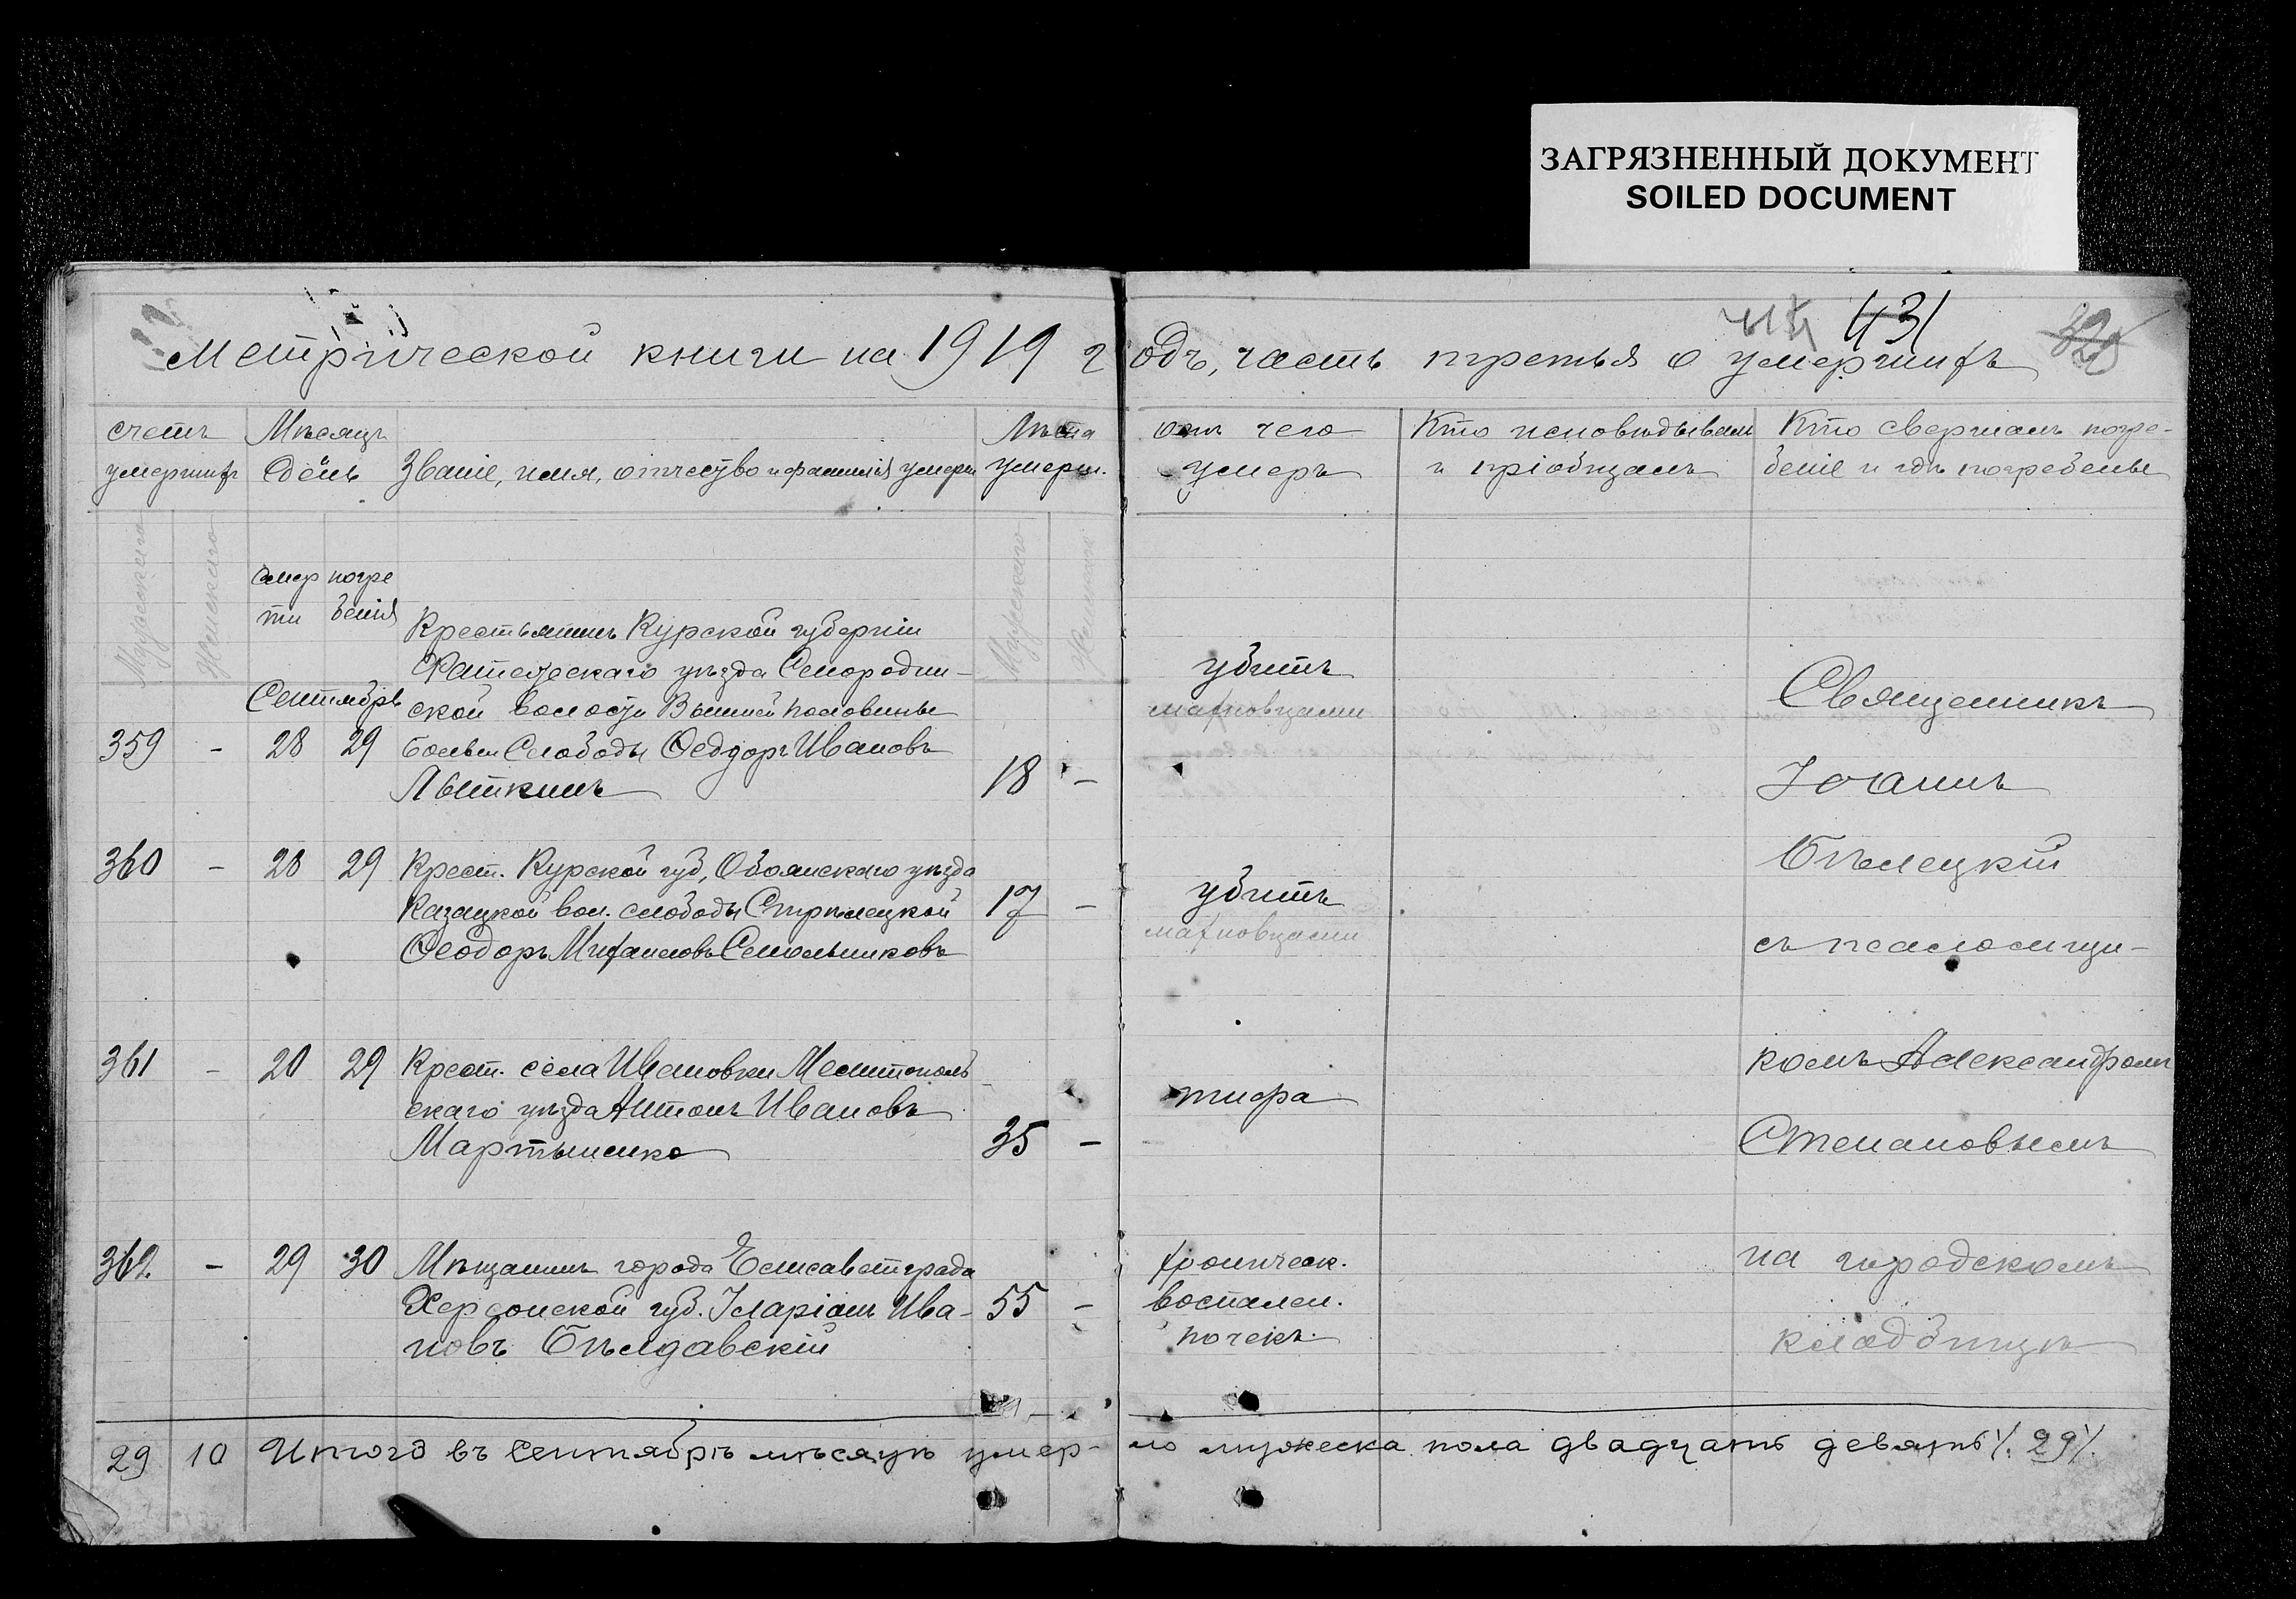 ЗАГРЯЗНЕННЫЙ ДОКУМЕНТ
SOILED DOCUMENT
431
Метрической книги на 1919 годъ, часть третья о умершихъ
счетъ умершихъ
Мѣсяцъ день
Званіе, имя, отчество и фамилія умерш
Лѣта умерш.
отъ чего умеръ
Кто исповѣдывалъ и пріобщалъ
Кто совершалъ погребеніе и гдѣ погребены
Мужескаго
Женскаго
смерти
погребенія
Мужескаго
Женскаго
Сентябрь
359 - 28 29
Крестьянинъ Курской губерніи
Фатежскаго уѣзда Смородин-
ской волости
Слободы Феодоръ Ивановъ
Лыткинъ
18 -
убитъ
махновцами
360 - 28 29
Крест. Курской губ, Обоянскаго уѣзда
Казацкой вол. слободы Стрѣлецкой
Феодоръ Михаиловъ Смольниковъ
17 -
убитъ
махновцами
361 - 28 29
Крест. села Ивановки Мелитополь-
скаго уѣзда Антонъ Ивановъ
Мартыненко
35 -
тифа
362 - 29 30
Мѣщанинъ города Елисаветграда
Херсонской губ. Іларіонъ Ива-
новъ Бѣлдавскій
55 -
хроническ.
воспален.
почекъ.
Священникъ
Іоаннъ
Бѣлецкій
съ псаломщи-
комъ Александромъ
Степановымъ
на городскомъ
кладбищѣ
29 10 Итого въ Сентябрѣ мѣсяцѣ умер-ло мужеска пола двадцать девять /. 29 /.